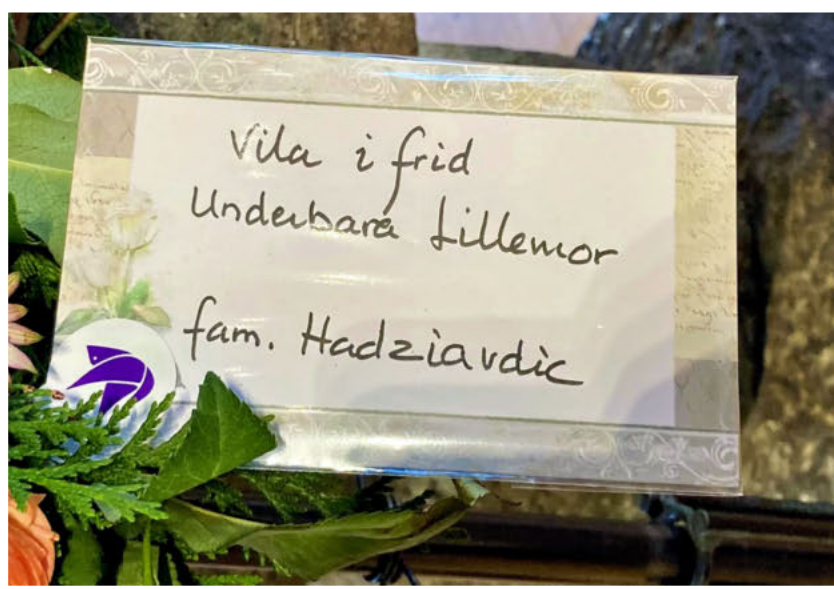 Vila i frid
Underbara Lillemor
fam. Hadziavdic